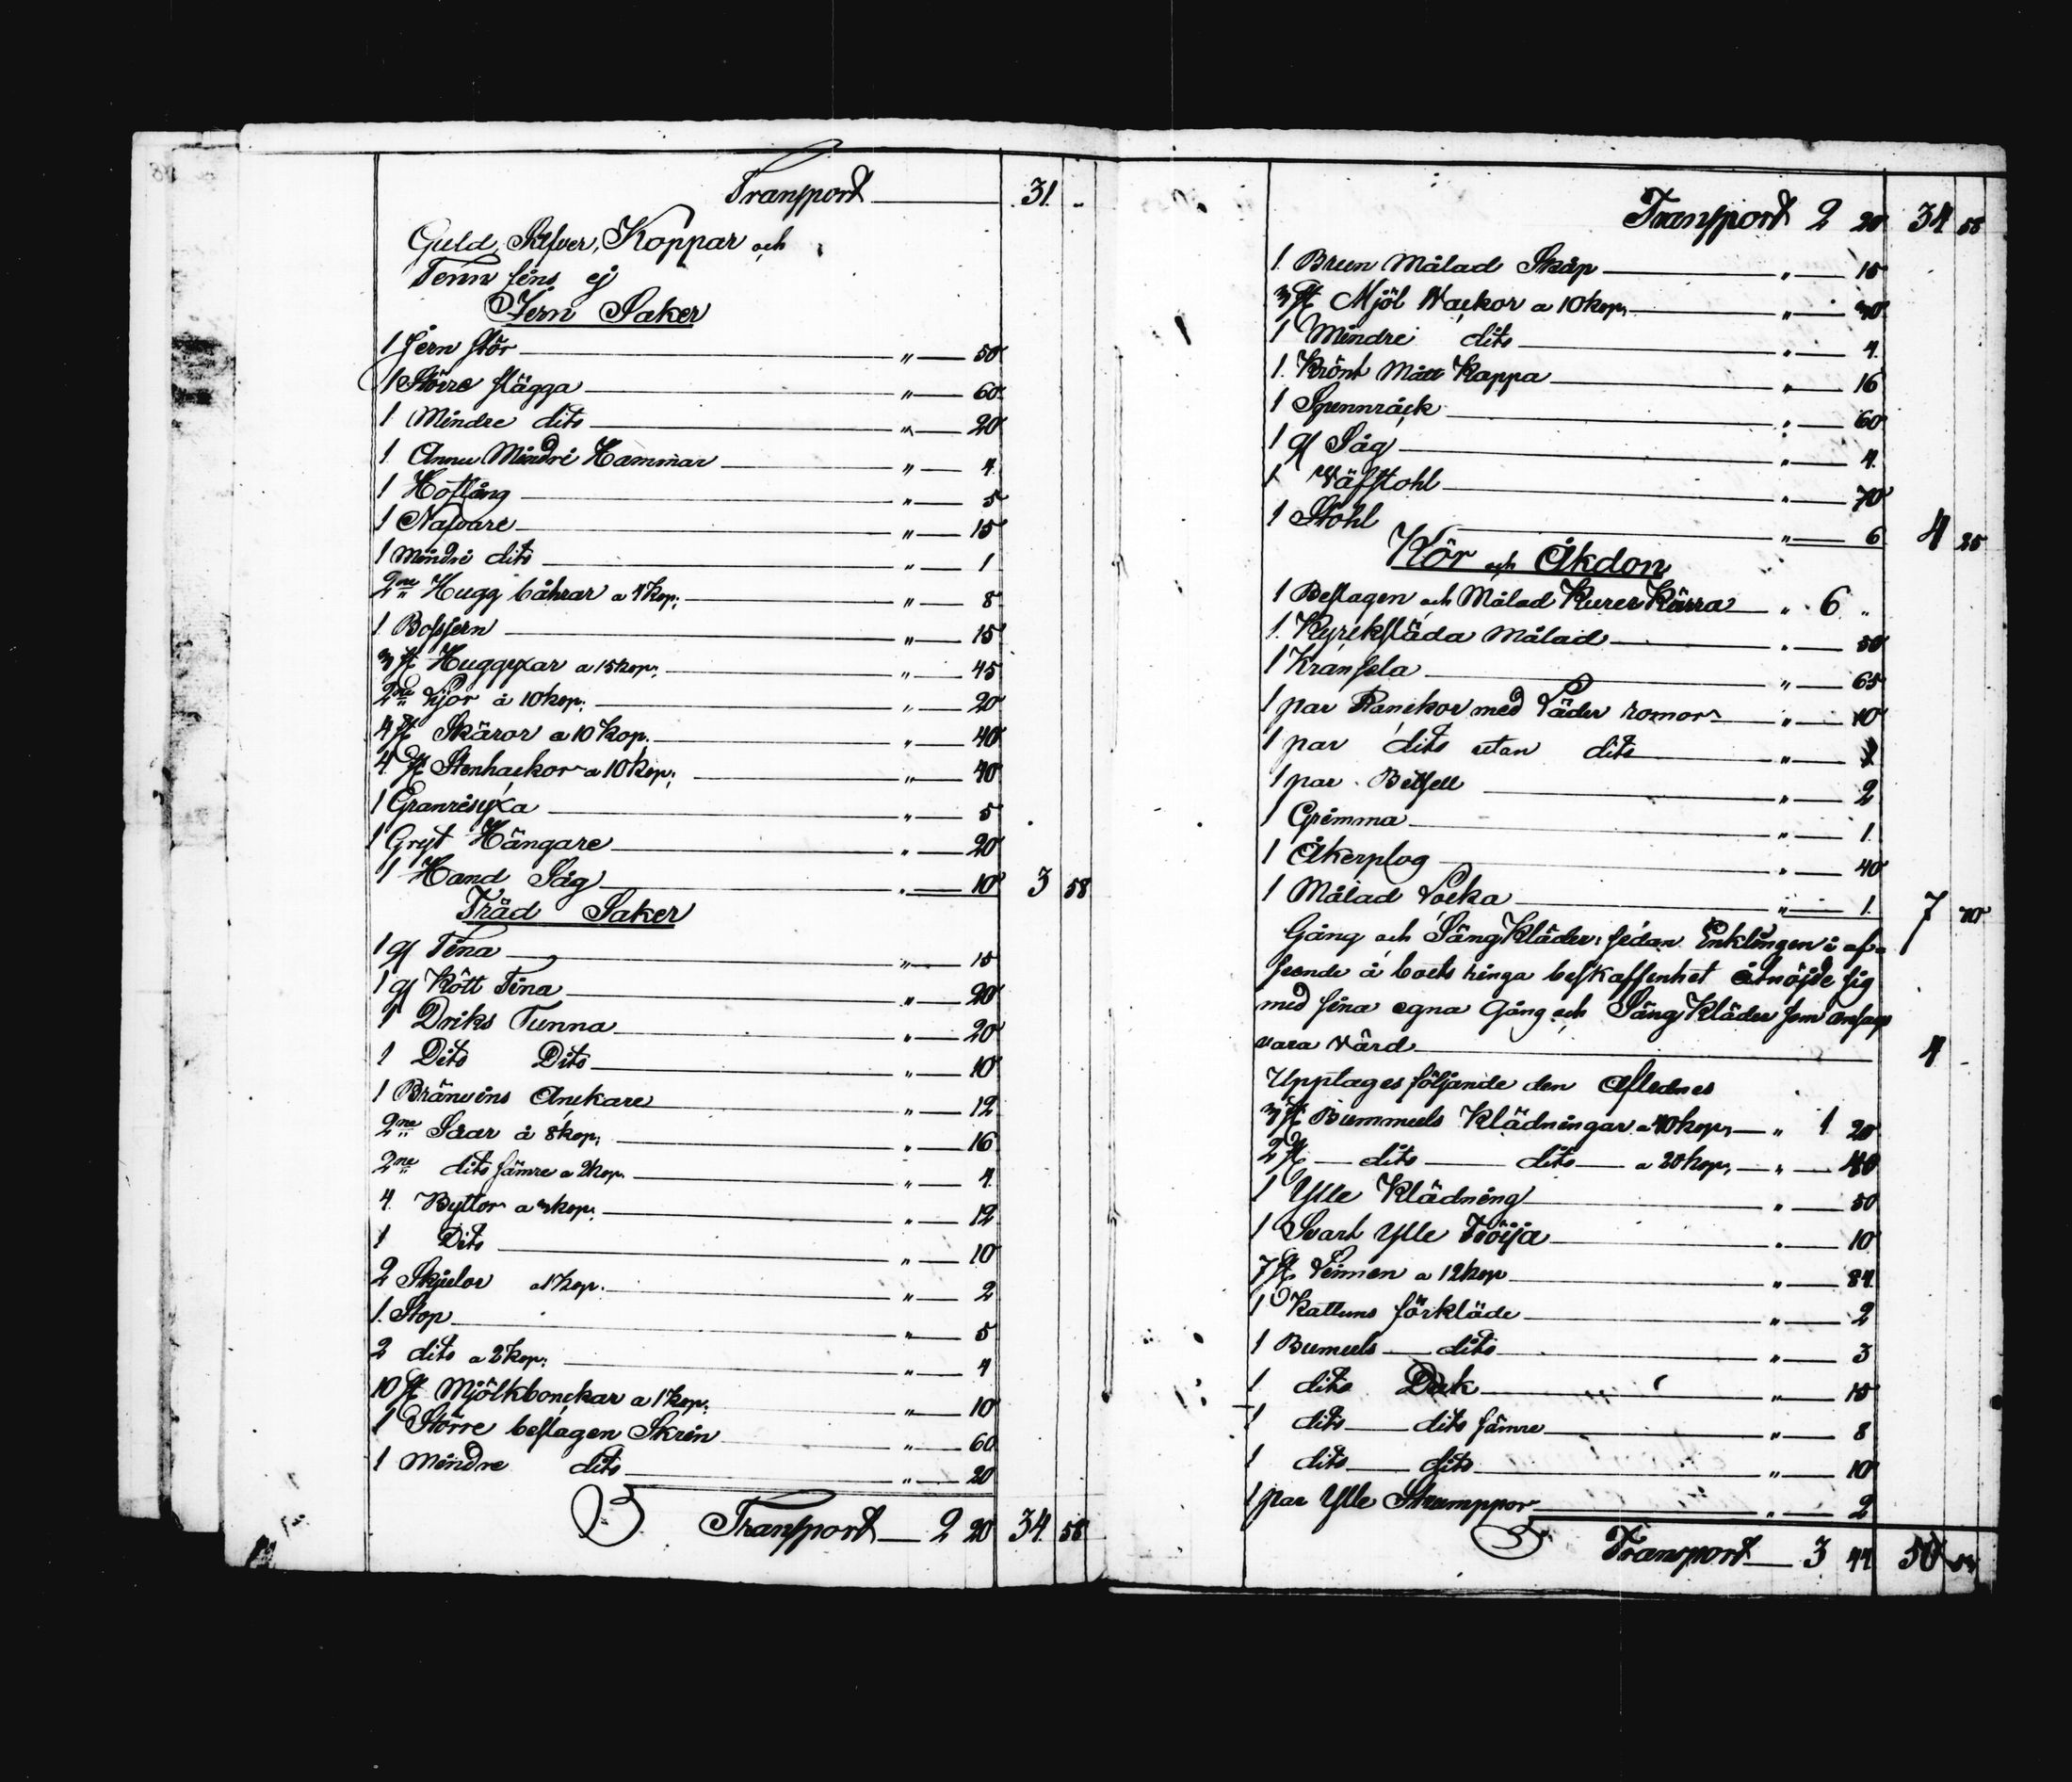 Transport 31 "
Guld, Silfver, Koppar och
Tenn fins ej
Jern Saker
1 Jern Stör " 50
1 Större Slägga " 60
1 Mindre dito " 20
1 Annu Mindre Hammar " 4
1 Hoftång " 5
1 Nafvare " 15
1 Mindre dito " 1
2ne Hugg båhrar a 4 kop: " 8
1 Bossjern " 15
3 st Huggyxar a 15 kop: " 45
2ne Lijor à 10 kop: " 20
4 st Skäror a 10 kop. " 40
4 st Stenhackor a 10 kop; " 40
1 Granrisyxa " 5
1 Gryt Hängare " 20
1 Hand Såg " 10 3 58
Träd Saker
1 gl Tina " 15
1 gl Kött Tina " 20
1 Driks Tunna " 20
1 Dito Dito " 10
1 Bränvins Anckare " 12
2ne Såar à 8 kop; " 16
2ne dito sämre a 2 kop. " 4
4 Byttor a 3 kop: " 12
1 Dito " 10
2 Skjulor a 1 kop. " 2
1 Stop " 5
2 dito a 2 kop: " 4
10 st Mjölkbonckar a 1 kop: " 10
1 Större beslagen Skrin " 60
1 Mindre dito " 20
Transport 2 20 34 58
Transport 2 20 34 58
1 Brun Målad Skåp " 15
3 st Mjöl Wackor a 10 kop; " 30
1 Mindre dito " 4
1 Krönt Mått Kappa " 16
1 Spinnråck " 60
1 gl Såg " 4
1 Wäfstohl " 70
1 Stohl " 6 4 25
Kör och Åkdon
1 Beslagen och Målad Kurer Kärra " 6 "
1 Kyrcksläda Målad " 50
1 Kransela " 65
1 par Ranckor med Läder romor " 10
1 par dito utan dito " 1
1 par Betsell " 2
1 Grimma " 1
1 Åkerplog " 40
1 Målad Locka " 1 7 70
Gång och Säng Kläder: sedan Enklingen i af-
seende å boets ringa beskaffenhet åtnöjde sig
med sina egna Gång och Säng Kläder som ansags
vara wärd 4 -
Upptages följande den Aflednes
3 st Bummuls Klädningar a 40 kop; " 1 20
2 st dito dito a 20 kop; " 40
1 Ylle Klädning " 50
1 Svart Ylle Tröija " 10
7 st Linnen a 12 kop " 84
1 Kattuns förkläde " 2
1 Bumuls dito " 3
1 dito Duk " 15
1 dito dito sämre " 8
1 dito dito " 10
1 par Ylle Strumppor " 2
Transport 3 44 50 53